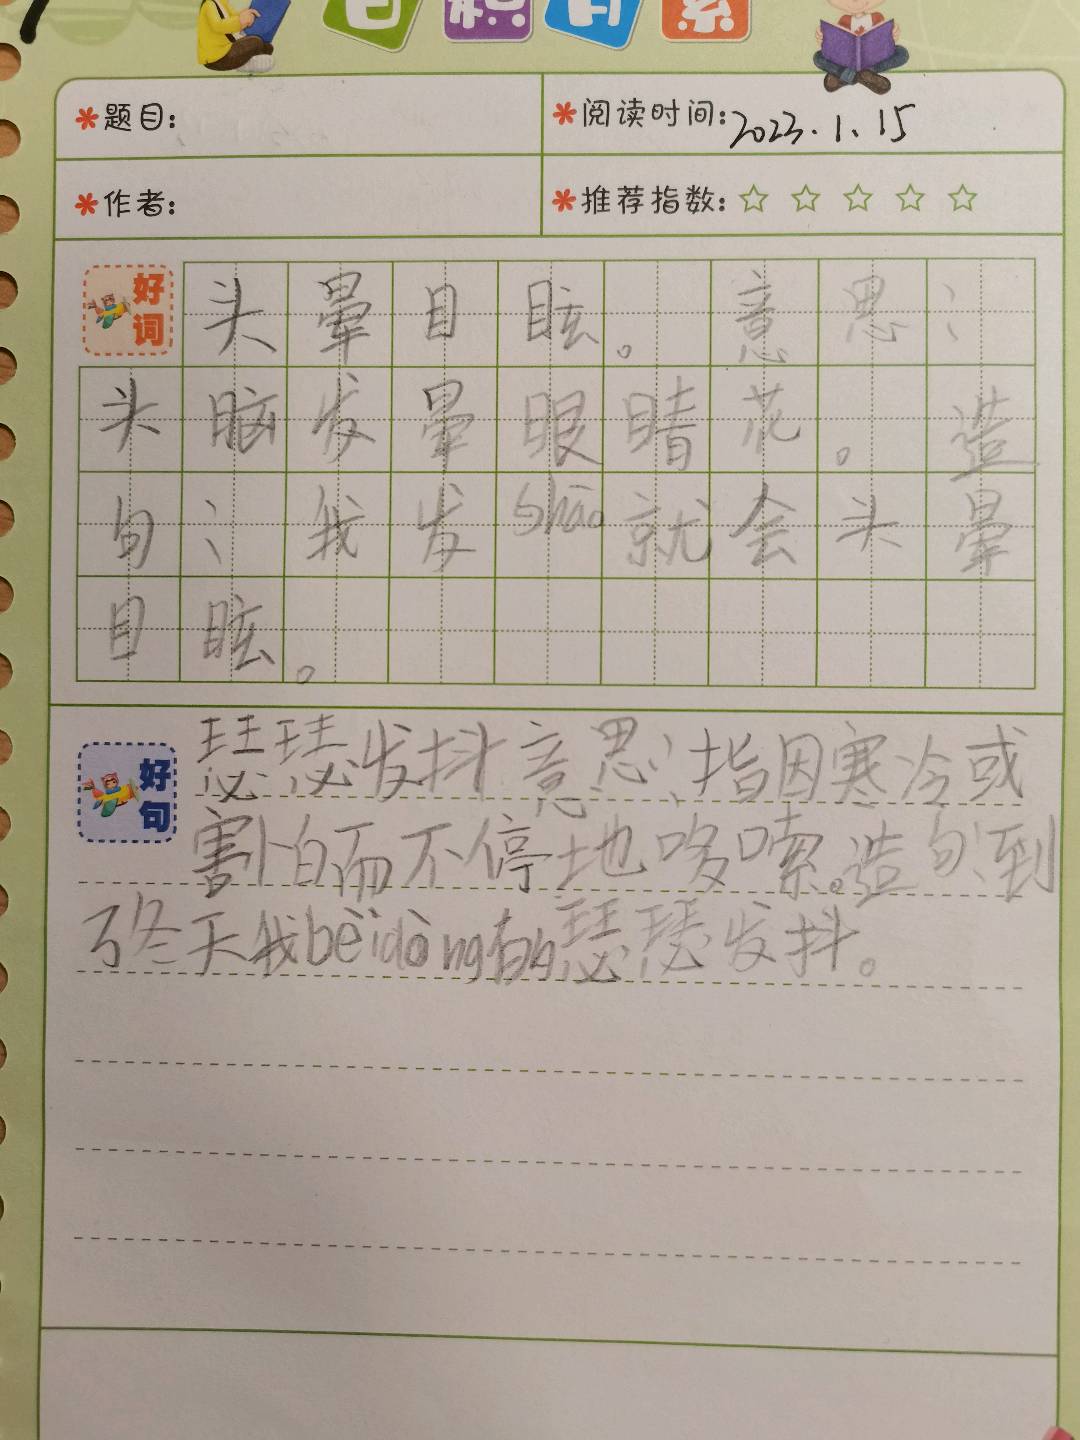 日积月累
*题目:
*阅读时间:2023.1.15
*作者:
*推荐指数:☆☆☆☆☆
好词
头晕目眩。意思:
头脑发晕眼睛花。造
句:我发shāo就会头晕
目眩。
好句
瑟瑟发抖意思:指因寒冷或
害怕而不停地哆嗦。造句:到
了冬天我bèidòng的瑟瑟发抖。